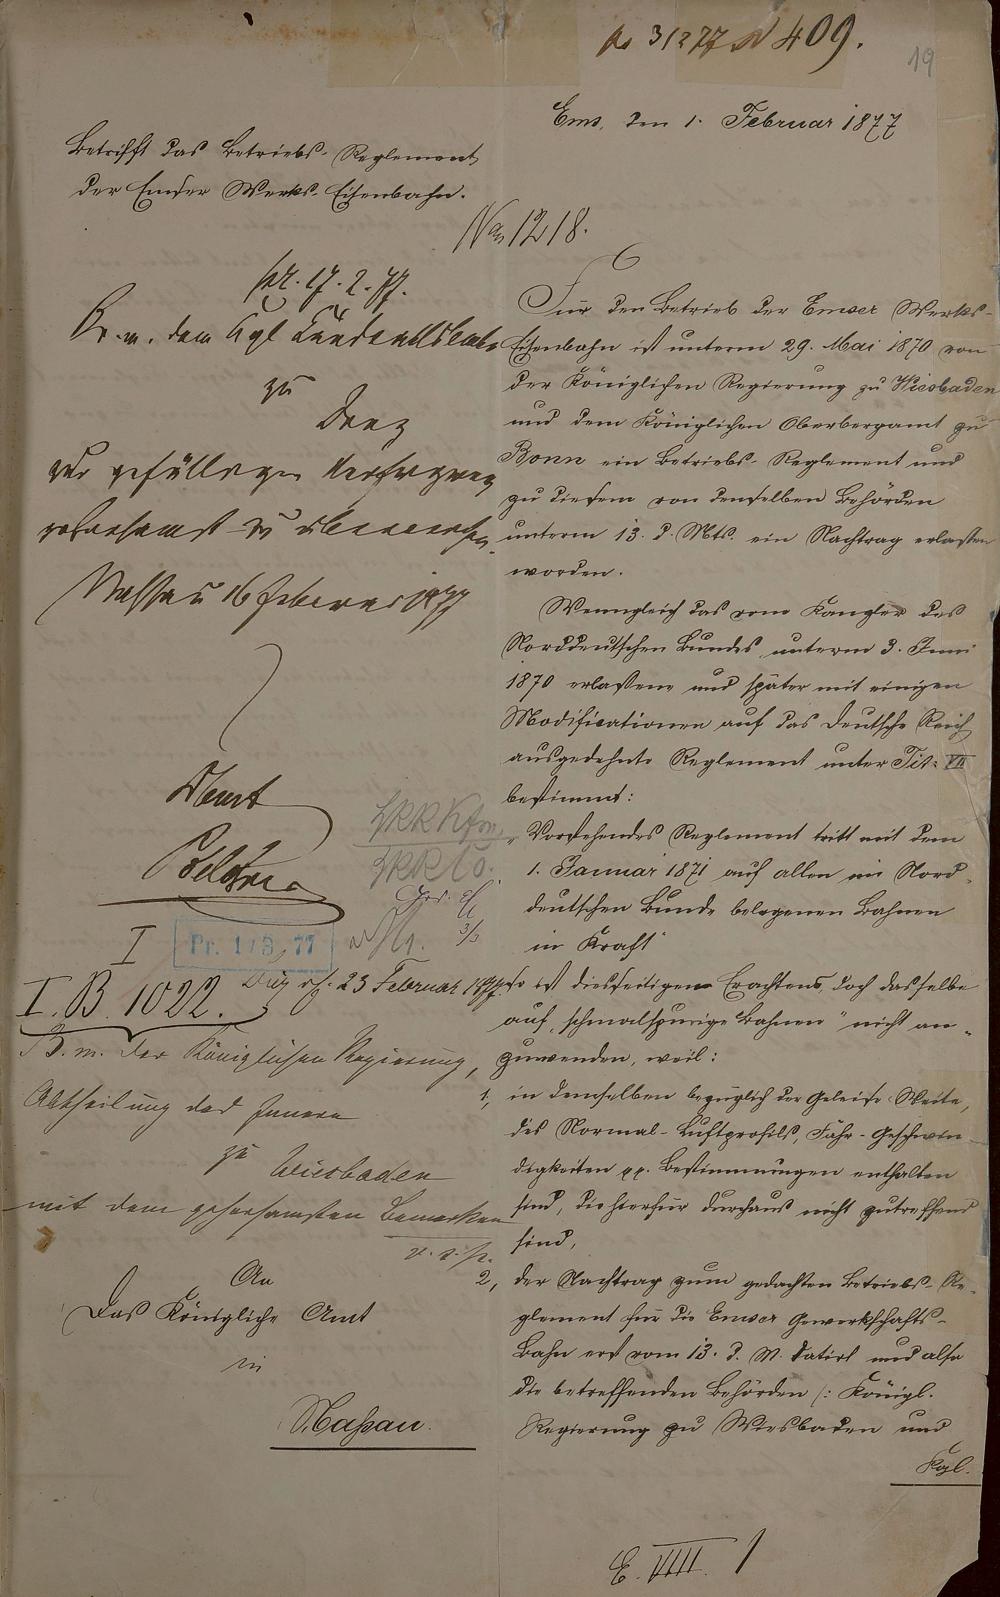 3/2 77 N 409.
19
Ems, den 1. Februar 1877
Betrifft das Betriebs-Reglement
der Emser Werks-Eisenbahn.
1218.
pr. 17.2.77.
dem Kgl
zu
zur gefälligen Verfügung
gehorsamst zu
Nassau 16 Februar 1877
Amt
I
Pr. 1/3. 77
I. B. 1022.
23 Februar 1877.
B. m. der Königlichen Regierung,
Abtheilung des Innern
zu Wiesbaden
mit dem gehorsamsten Bemerken
v. s. p.
An
Das Königliche Amt
in
Nassau.
Für den Betrieb der Emser Werks-
Eisenbahn ist unterm 29. Mai 1870 von
der Königlichen Regierung zu Wiesbaden
und dem Königlichen Oberbergamt zu
Bonn ein Betriebs-Reglement und
zu diesem von denselben Behörden
unterm 13. d. Mts. ein Nachtrag erlassen
worden.
Wenngleich das vom Kanzler des
Norddeutschen Bundes unterm 3. Juni
1870 erlassene und später mit einigen
Modificationen auf das deutsche Reich
ausgedehnte Reglement unter Tit: VII
bestimmt:
„Vorstehendes Reglement tritt mit dem
1. Januar 1871 auf allen im Nord-
deutschen Bunde belegenen Bahnen
in Kraft"
so ist diesseitigen Erachtens doch dasselbe
auf „schmalspurige Bahnen" nicht an-
zuwenden, weil:
1, in demselben bezüglich der Geleise-Weite,
des Normal-Luftprofils, Fahr-Geschwin-
digkeiten pp. Bestimmungen enthalten
sind, die hierfür durchaus nicht zutreffend
sind,
2, der Nachtrag zum gedachten Betriebs-Re-
glement für die Emser Gewerkschafts-
Bahn erst vom 13. d. M. datirt und also
die betreffenden Behörden /: Königl.
Regierung zu Wiesbaden und
Kgl.
E. VIII. 1